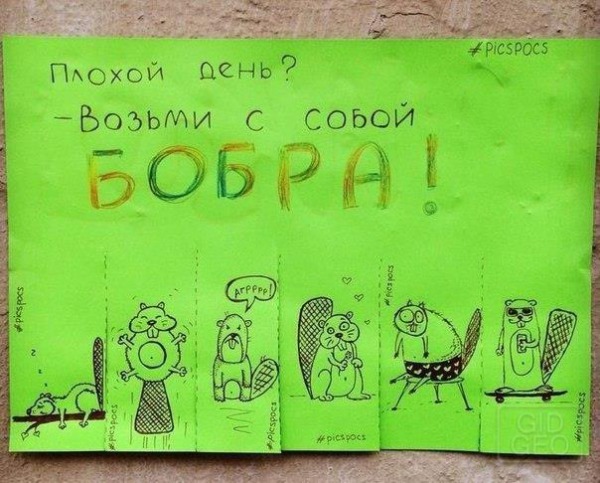 #PICSPOCS
Плохой день?
-Возьми с собой
БОБРА!
#picspocs
#picspocs
z
z
Агрррр!
#picspocs
#picspocs
#picspocs
#picspocs
GID
GEO